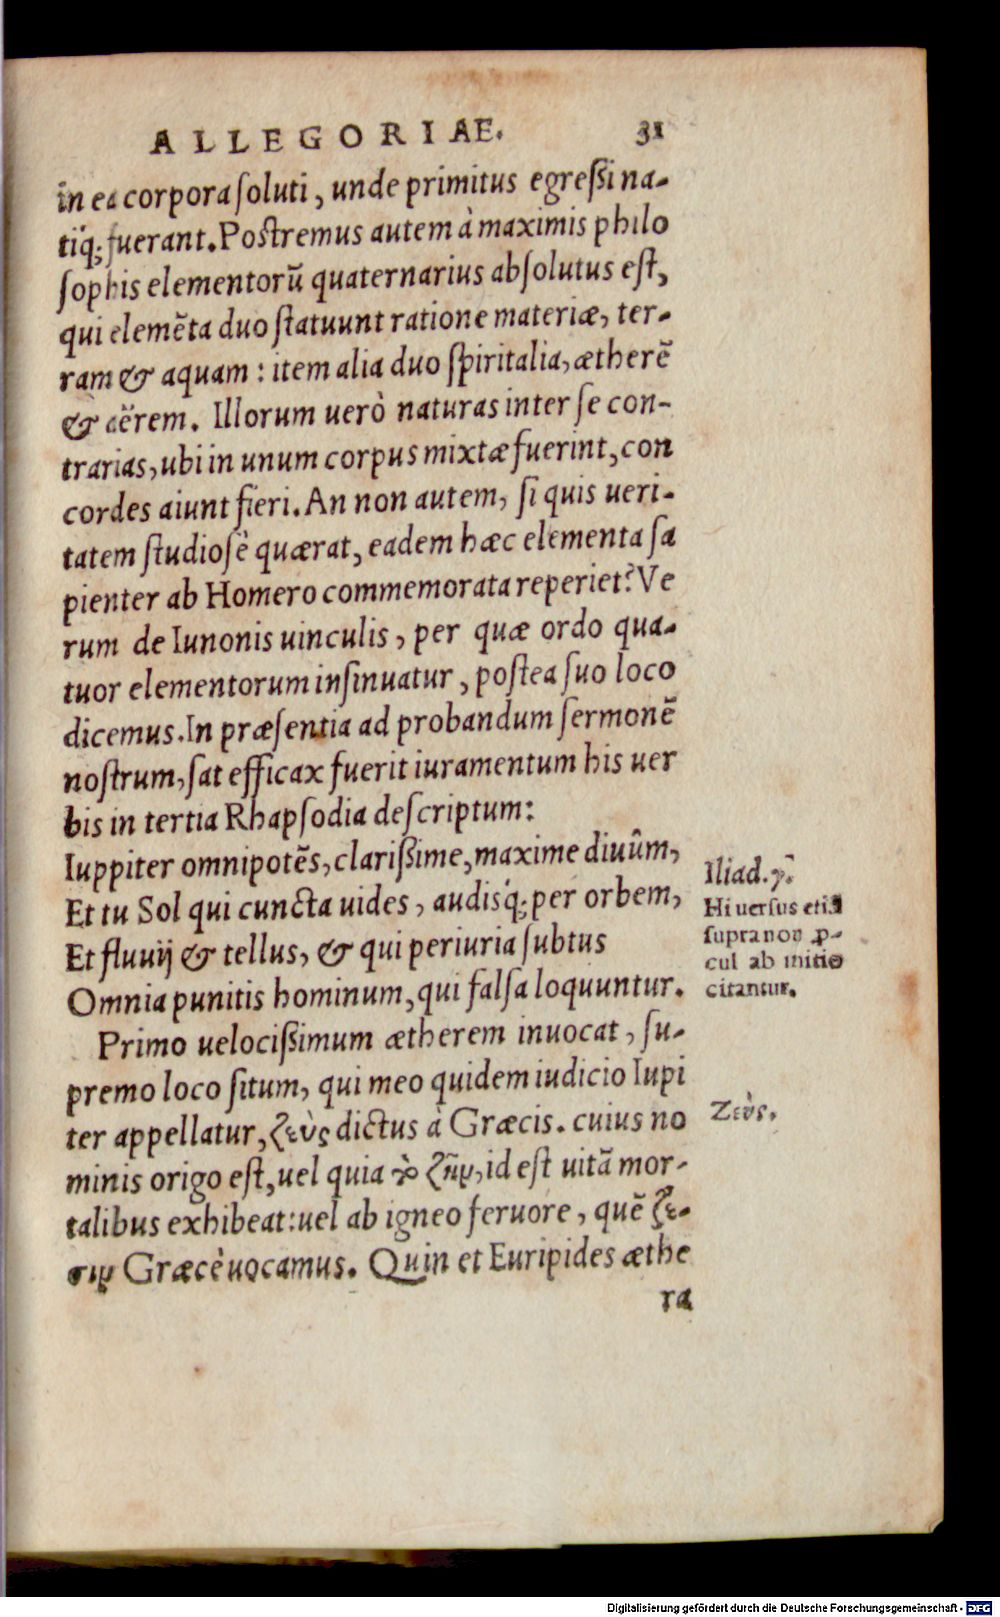 ALLEGORIAE. 31
in ea corpora ſoluti, unde primitus egreſſi na-
tiq́; fuerant. Postremus autem à maximis philo
ſophis elementorũ quaternarius abſolutus eſt,
qui elemẽta duo ſtatuunt ratione materiæ, ter-
ram & aquam: item alia duo ſpiritalia, ætherẽ
& aërem. Illorum uerò naturas inter ſe con-
trarias, ubi in unum corpus mixtæ fuerint, con
cordes aiunt fieri. An non autem, ſi quis ueri-
tatem ſtudioſè quærat, eadem hæc elementa ſa
pienter ab Homero commemorata reperiet? Ve
rum de Iunonis uinculis, per quæ ordo qua-
tuor elementorum inſinuatur, poſtea ſuo loco
dicemus. In præſentia ad probandum ſermonẽ
noſtrum, ſat efficax fuerit iuramentum his uer
bis in tertia Rhapſodia deſcriptum:
Iuppiter omnipotẽs, clariſſime, maxime diuûm,
Et tu Sol qui cuncta uides, audisq́; per orbem,
Et fluuij & tellus, & qui periuria ſubtus
Omnia punitis hominum, qui falſa loquuntur.
Iliad. γ.
Hi uerſus etiã
ſupra non ꝓ-
cul ab initio
citantur.
Primo uelociſſimum ætherem inuocat, ſu-
premo loco ſitum, qui meo quidem iudicio Iupi
ter appellatur, ζεὺς dictus à Græcis. cuius no
Ζεὺς.
minis origo eſt, uel quia τὸ ζῆν, id eſt uitã mor-
talibus exhibeat: uel ab igneo feruore, quẽ ζε-
σιν Græcè uocamus. Quin et Euripides æthe
ra
Digitalisierung gefördert durch die Deutsche Forschungsgemeinschaft - DFG